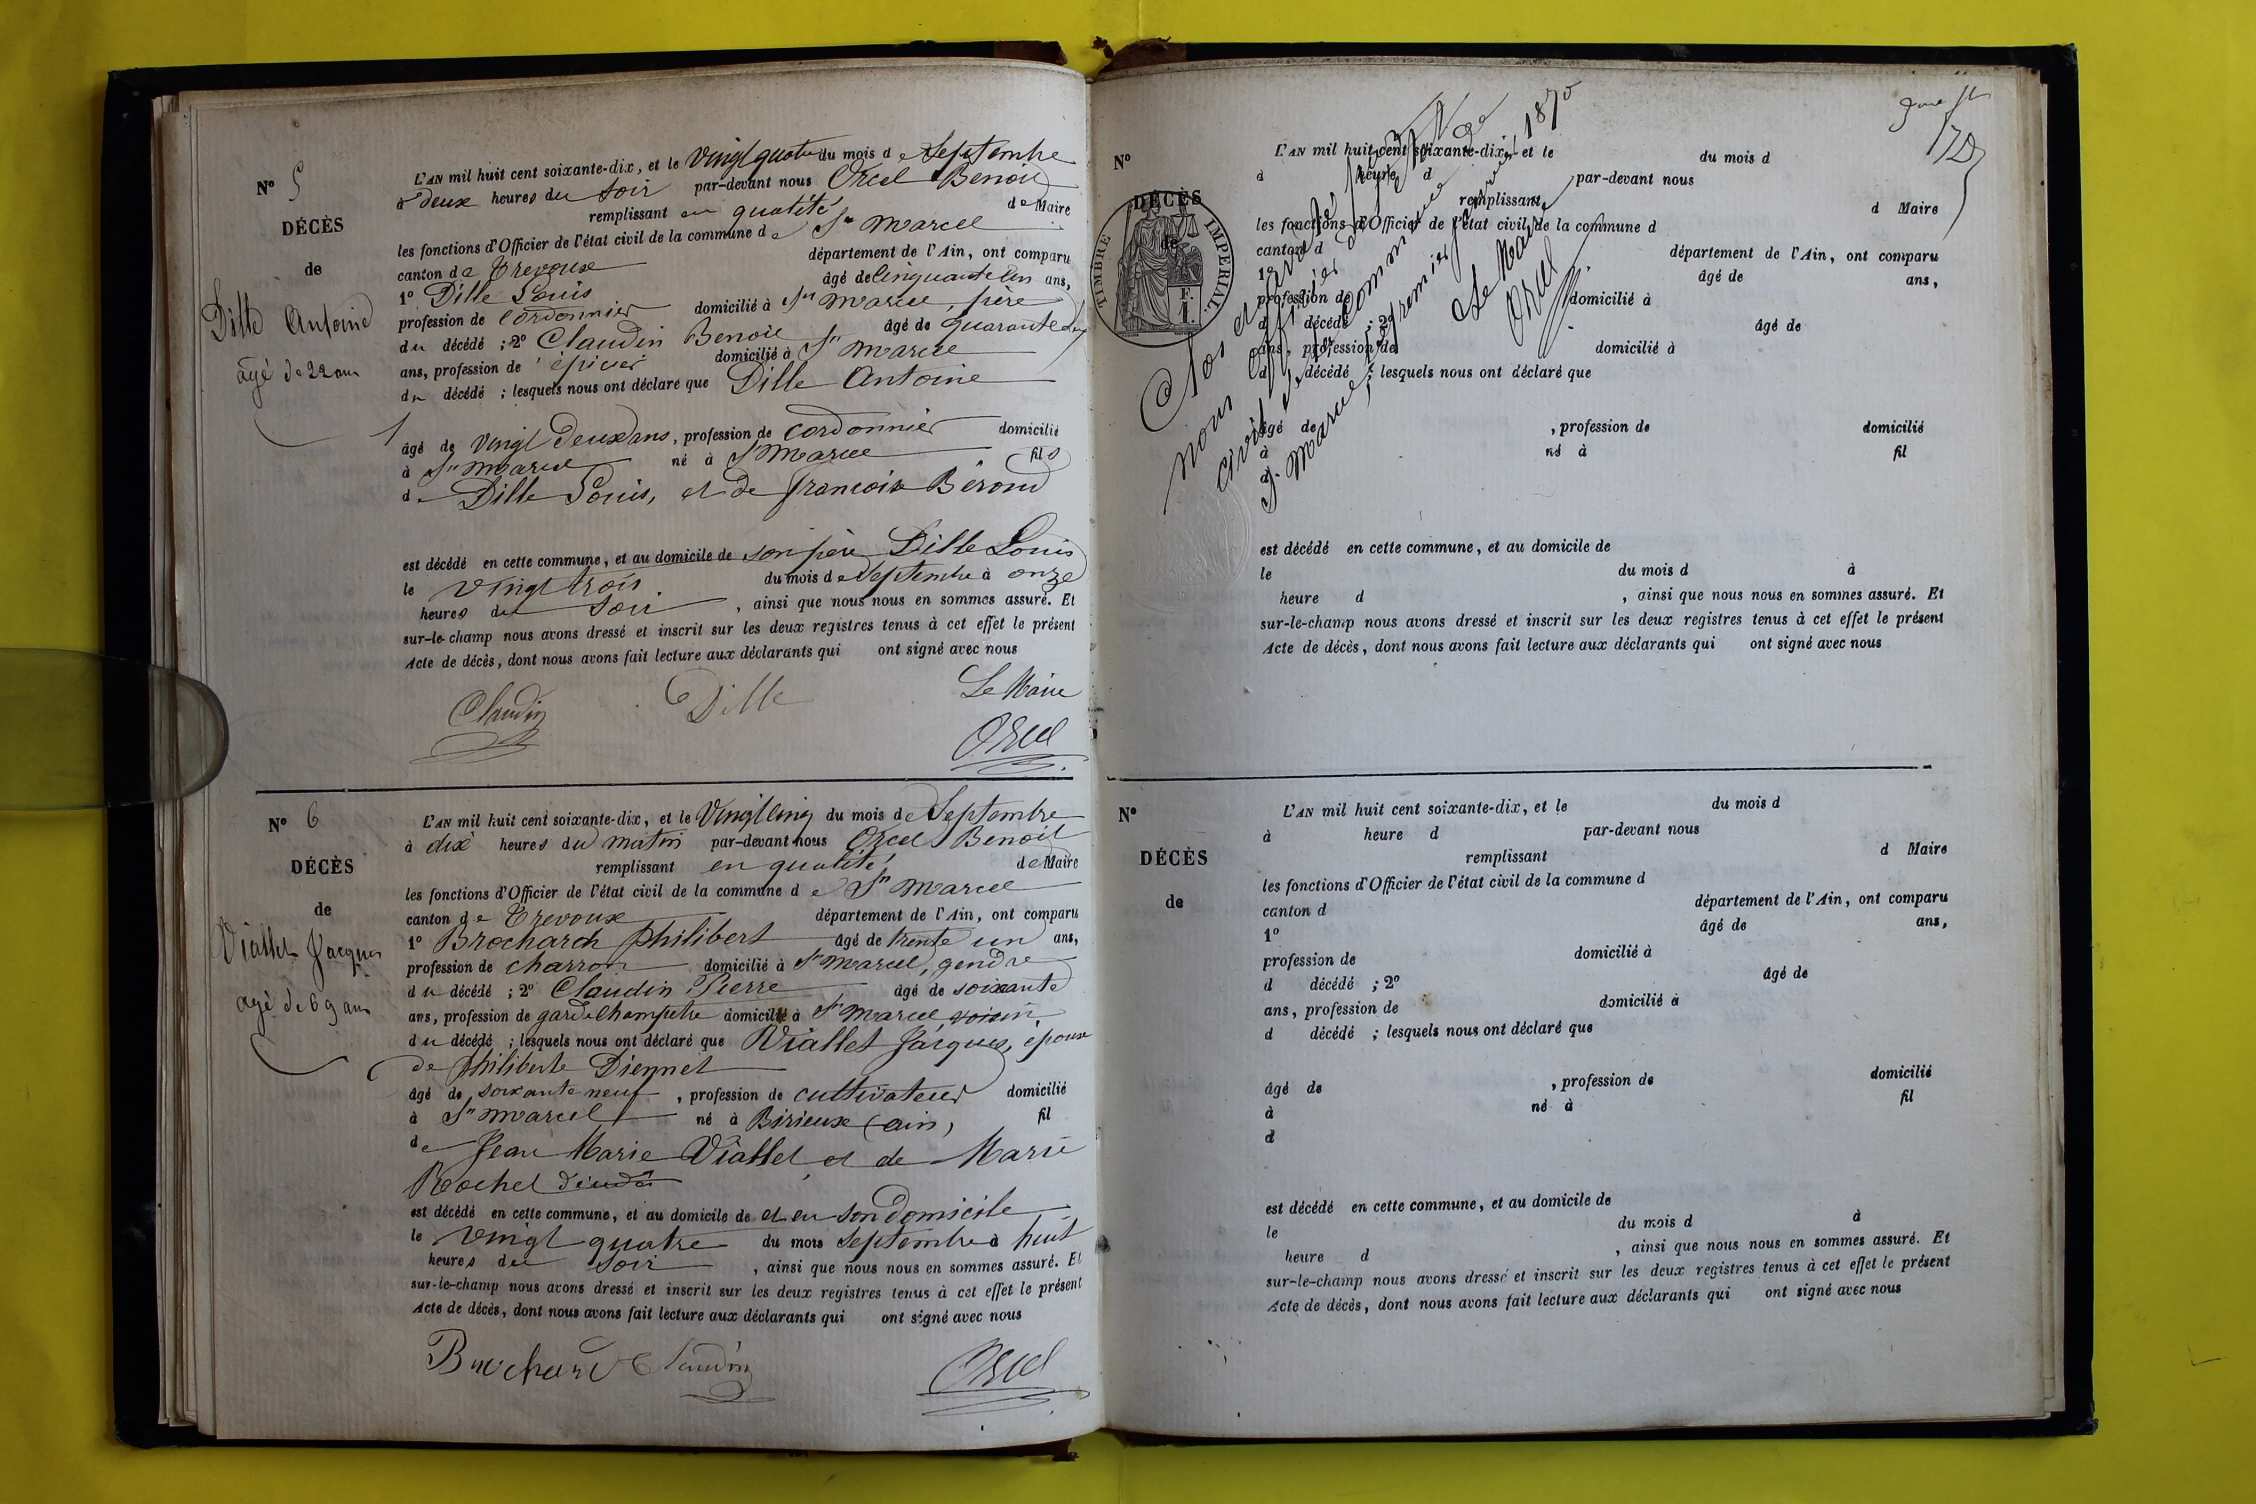 N° 5
DÉCÈS
de
Dille Antoine
agé de 22 ans
L'AN mil huit cent soixante-dix, et le Vingt quatre du mois de Septembre
à deux heures du soir par-devant nous Orcel Benoit
remplissant en qualité de Maire
les fonctions d'Officier de l'état civil de la commune de St Marcel
canton de Trevoux département de l'Ain, ont comparu
1° Dille Louis âgé de Cinquante Cin ans,
profession de Cordonnier domicilié à St Marcel, père
du décédé ; 2° Claudin Benoit âgé de quarante
ans, profession de épicier domicilié à St Marcel
du décédé ; lesquels nous ont déclaré que Dille Antoine
âgé de vingt Deux ans, profession de Cordonnier domicilié
à St Marcel né à St Marcel fils
de Dille Louis, et de francoise Bérond
est décédé en cette commune, et au domicile de son père Dille Louis
le Vingt trois du mois de Septembre à onze
heures du Soir, ainsi que nous nous en sommes assuré. Et
sur-le-champ nous avons dressé et inscrit sur les deux registres tenus à cet effet le présent
Acte de décès, dont nous avons fait lecture aux déclarants qui ont signé avec nous
Claudin Dille Le Maire
Orcel
N° 6
DÉCÈS
de
Viallet Jacques
agé de 69 ans
L'AN mil huit cent soixante-dix, et le Vingt cinq du mois de Septembre
à dix heures du matin par-devant nous Orcel Benoit
remplissant en qualité de Maire
les fonctions d'Officier de l'état civil de la commune de St Marcel
canton de Trevoux département de l'Ain, ont comparu
1° Brochard Philibert âgé de trente un ans,
profession de charron domicilié à St Marcel, gendre
du décédé ; 2° Claudin Pierre âgé de soixante
ans, profession de garde Champetre domicilié à St Marcel voisin,
du décédé ; lesquels nous ont déclaré que Viallet Jacques, epoux
de Philiberte Diennet
âgé de soixante neuf, profession de cultivateur domicilié
à St Marcel né à Birieux (ain) fil
de Jean Marie Viallet et de Marie
Rochel
est décédé en cette commune, et au domicile de et en son Domicile
le Vingt quatre du mois Septembre à huit
heures du soir, ainsi que nous nous en sommes assuré. Et
sur-le-champ nous avons dressé et inscrit sur les deux registres tenus à cet effet le présent
Acte de décès, dont nous avons fait lecture aux déclarants qui ont signé avec nous
Brochard Claudin Orcel
N°
DÉCÈS
de
TIMBRE IMPERIAL.
F.
1.
L'AN mil huit cent soixante-dix, et le du mois d
à heure d par-devant nous
remplissant d Maire
les fonctions d'Officier de l'état civil de la commune d
canton d département de l'Ain, ont comparu
1° âgé de ans,
profession de domicilié à
d décédé ; 2° âgé de
ans, profession de domicilié à
d décédé ; lesquels nous ont déclaré que
âgé de , profession de domicilié
à né à fil
d
est décédé en cette commune, et au domicile de
le du mois d à
heure d , ainsi que nous nous en sommes assuré. Et
sur-le-champ nous avons dressé et inscrit sur les deux registres tenus à cet effet le présent
Acte de décès, dont nous avons fait lecture aux déclarants qui ont signé avec nous
Clos et
nous Officier de
civil de la commune de
St Marcel premier janvier 1870
Le Maire
Orcel
N°
DÉCÈS
de
L'AN mil huit cent soixante-dix, et le du mois d
à heure d par-devant nous
remplissant d Maire
les fonctions d'Officier de l'état civil de la commune d
canton d département de l'Ain, ont comparu
1° âgé de ans,
profession de domicilié à
d décédé ; 2° âgé de
ans, profession de domicilié à
d décédé ; lesquels nous ont déclaré que
âgé de , profession de domicilié
à né à fil
d
est décédé en cette commune, et au domicile de
le du mois d à
heure d , ainsi que nous nous en sommes assuré. Et
sur-le-champ nous avons dressé et inscrit sur les deux registres tenus à cet effet le présent
Acte de décès, dont nous avons fait lecture aux déclarants qui ont signé avec nous